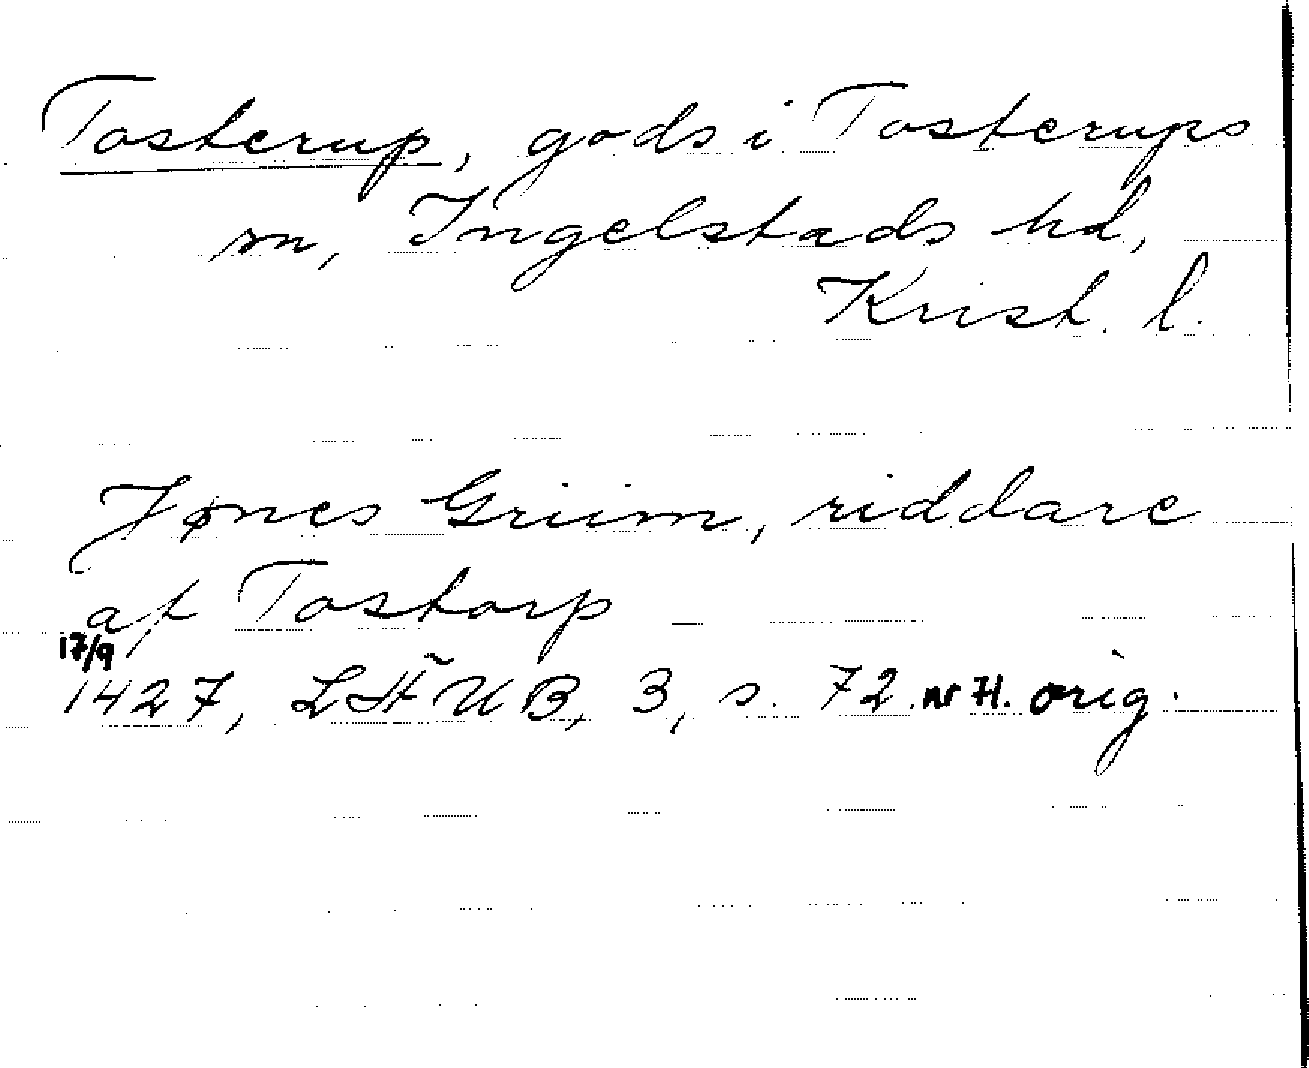 Tosterup, gods i Tosterups
sn, Ingelstads hd,
Krist. l.
Jønes Griim, riddare
af Tostorp
17/9
1427, LÄUB, 3, s. 72. nr 71. orig.